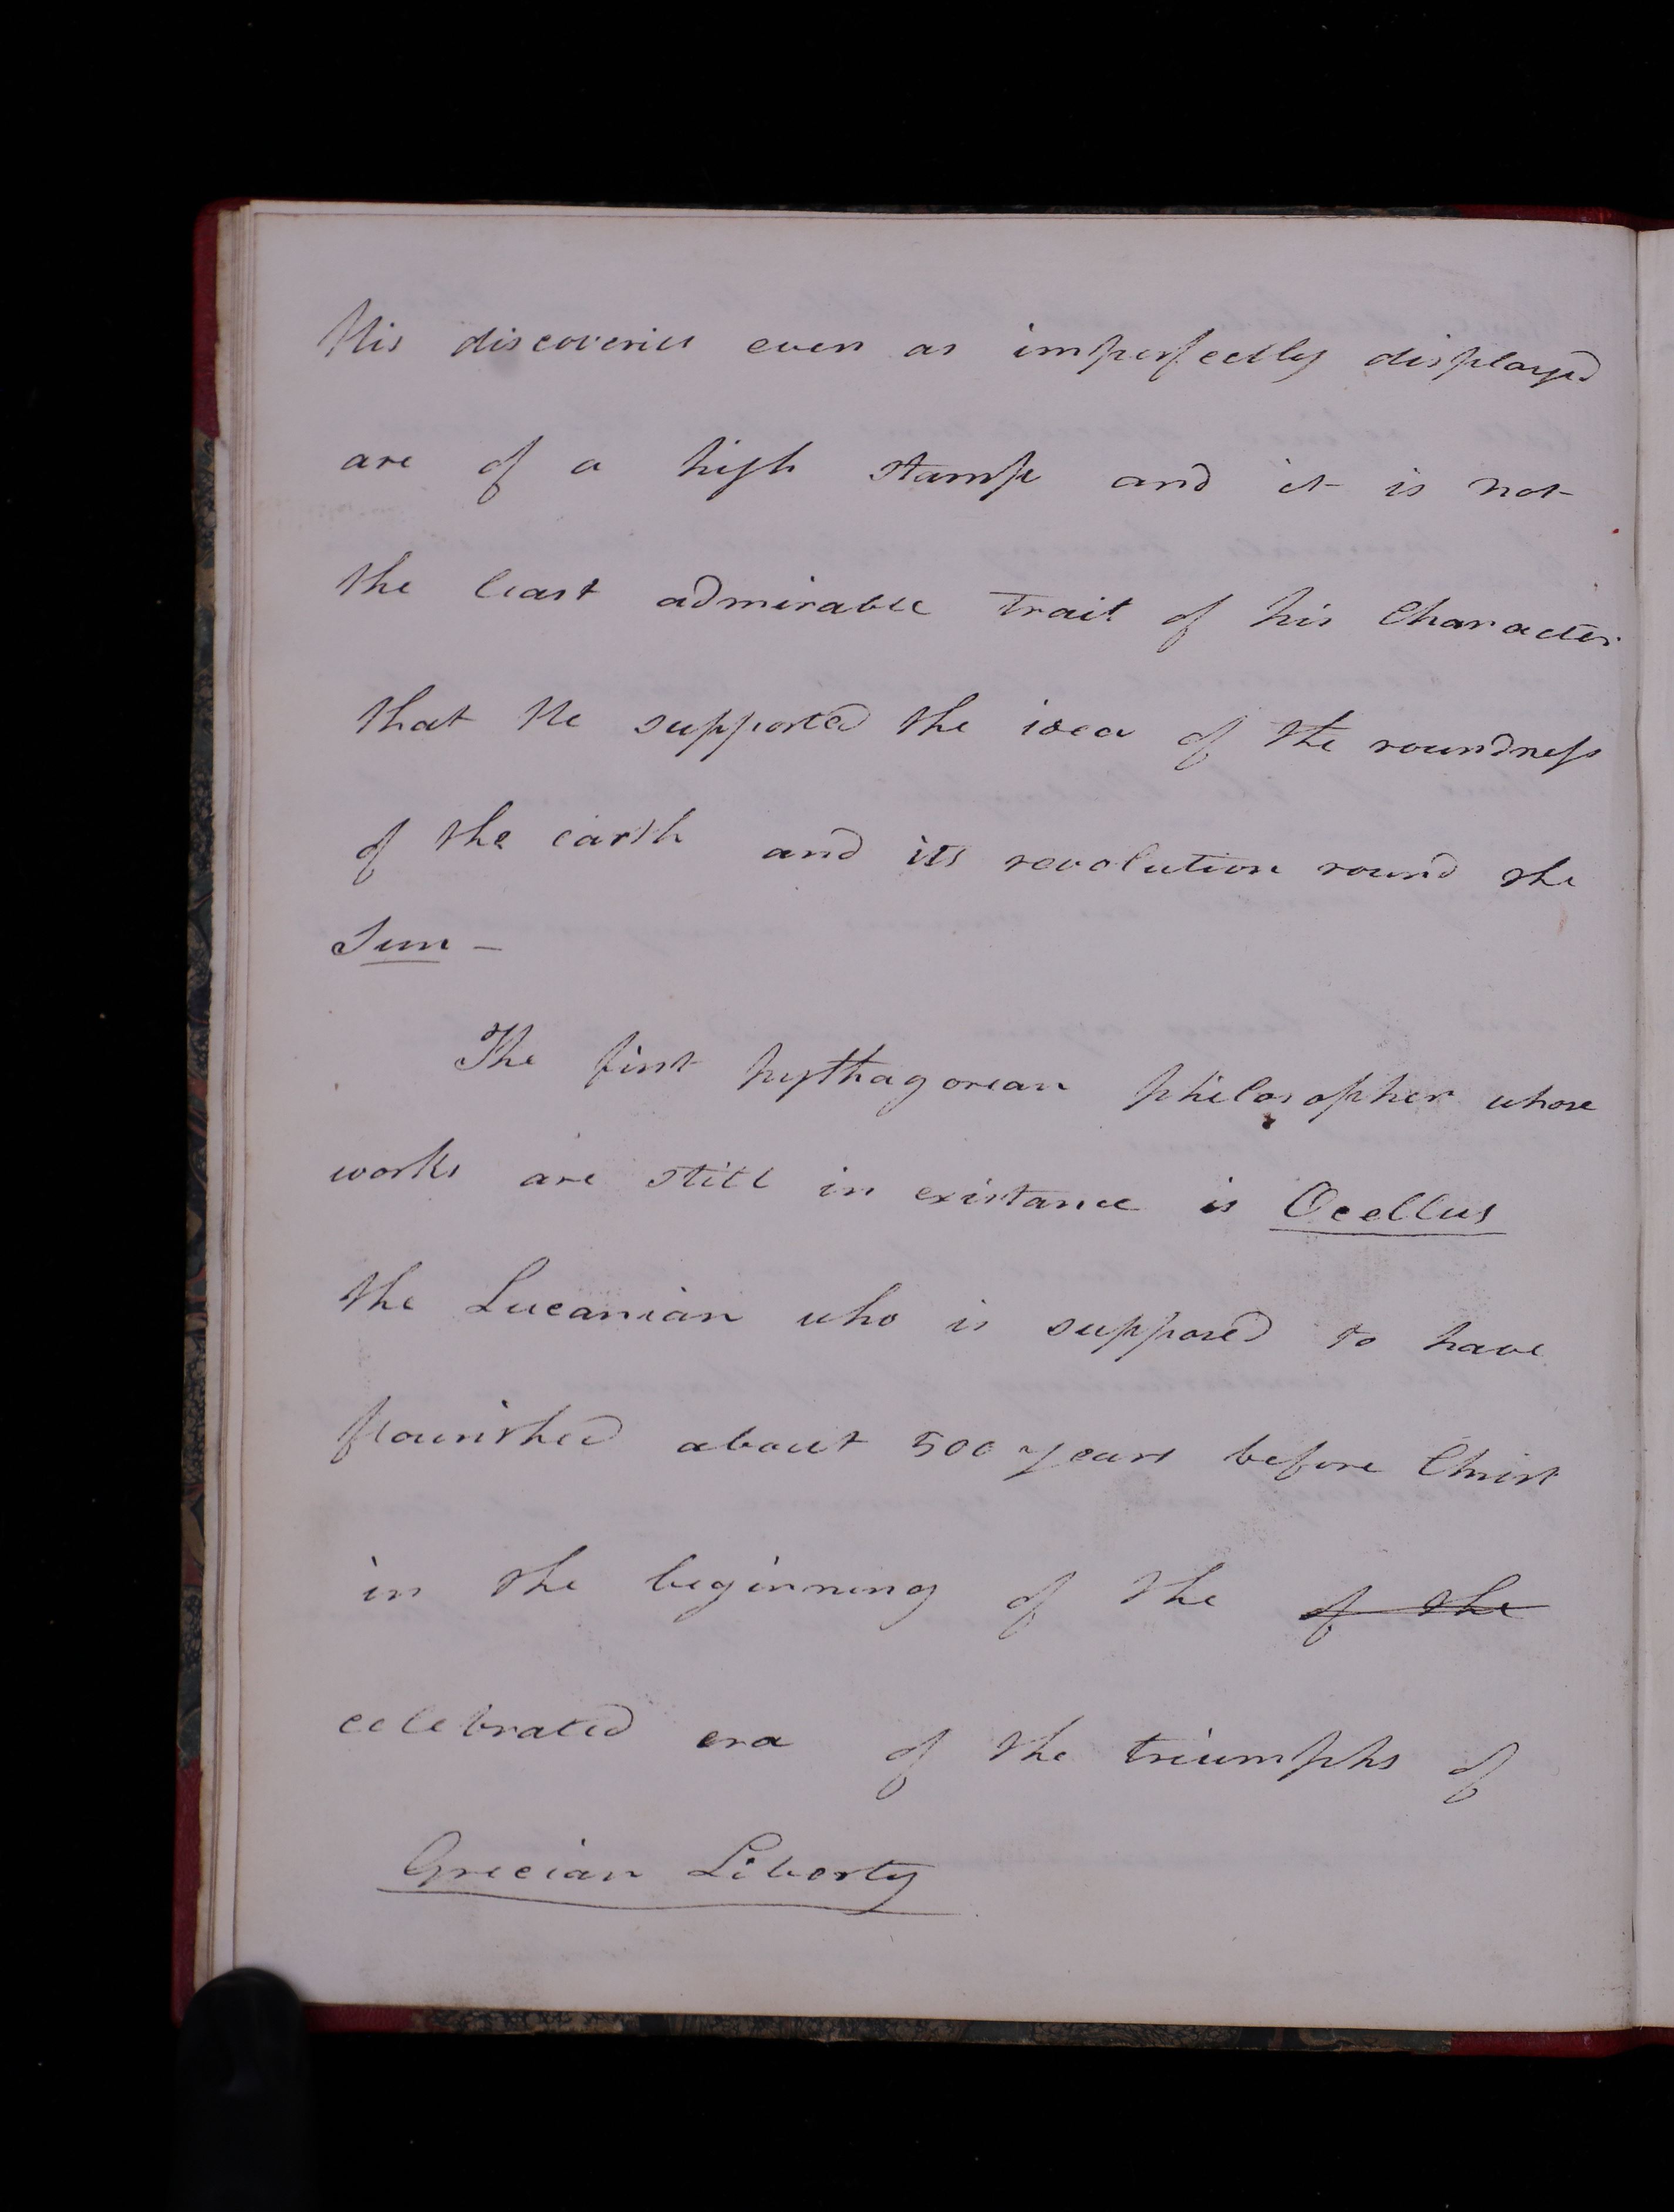 His discoveries even as imperfectly displayed
are of a high stamp and it is not
the least admirable trait of his Character
that He supported the idea of the roundness
of the earth and its revolution round the
Sun –
The first pythagorean philosopher whose
works are still in existance is Ocellus
the Lucanian who is supposed to have
flourished about 500 years before Christ
in the beginning of the of the
celebrated era of the triumphs of
Grecian Liberty